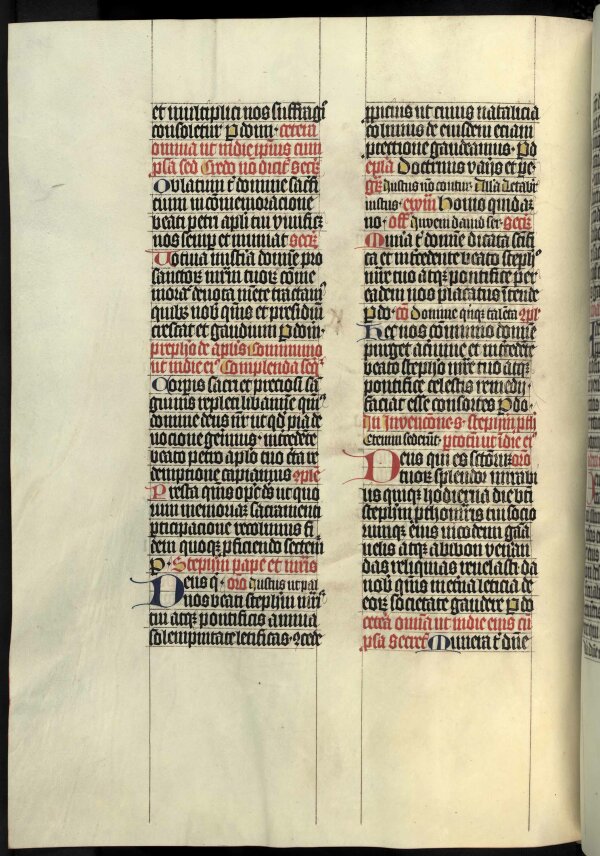 et multiplici nos suffragi
consoletur P dom · cetera
omnia ut in die ipsius cum
psa sed Credo no dicit secr
Oblatum t domine sacri
cium in comemoracione
beati petri apli tui vivificz
nos semp et muniat secr
Votiua mistia domine pro
sanctor mrm tuor come
morac deuota mete tractam
quibz nob quis et presidiu
crescat et gaudium P dom
prephio de aplis Communio
ut in die ei Complenda seq
Corpis sacri et preciosi sa
guinis repleti libamine quis
domine deus nr ut qd pia de
uocione gerimus · intercedete
beato petro aplo tuo certa re
demptione capiamus
Presta quis ops ds ut quo
rum memorias sacramenti
pticipacione recolimus fi
dem quoqz pficiendo sectem
p · Stephani pape et mris
Deus q · oro Iustus ut pal
nos beati stephani mris
tui atqz pontificis annua
solempnitate letificas ·
ppicius ut cuius natalicia
colimus de eiusdem eciam
ptectione gaudeamus · P do
epla Doctrinis varijs et pe
gr Iustus no contur · Alla Letabit
iustus · ewm Homo quida
no · off Inveni dauid ser · secr
Munera t domine dicata sctifi
ca et intercedente beato steph
mre tuo atqz pontifice per
eadem nos placatus intende
P do · co Domine quinqz talenta 
Hec nos communio domine
purget a crimine et intercedete
beato stephano mre tuo atqz
pontifice celestis remedij
faciat esse consortes P do ·
In invencione s · stephani pthi
Etenim sederut · ptotu ut in die ei
Deus qui es sctor oro
tuor splendor mirabi
lis quiqz hodierna die bti
stephani pthomris tui socio
rumqz eius nicodemi gama
lielis atqz abibon veneran
das reliquias reuelasti da
nob quis in eterna leticia de
eor societate gaudere P do
cetera omnia ut in die eius cu
psa secret Munera t dne